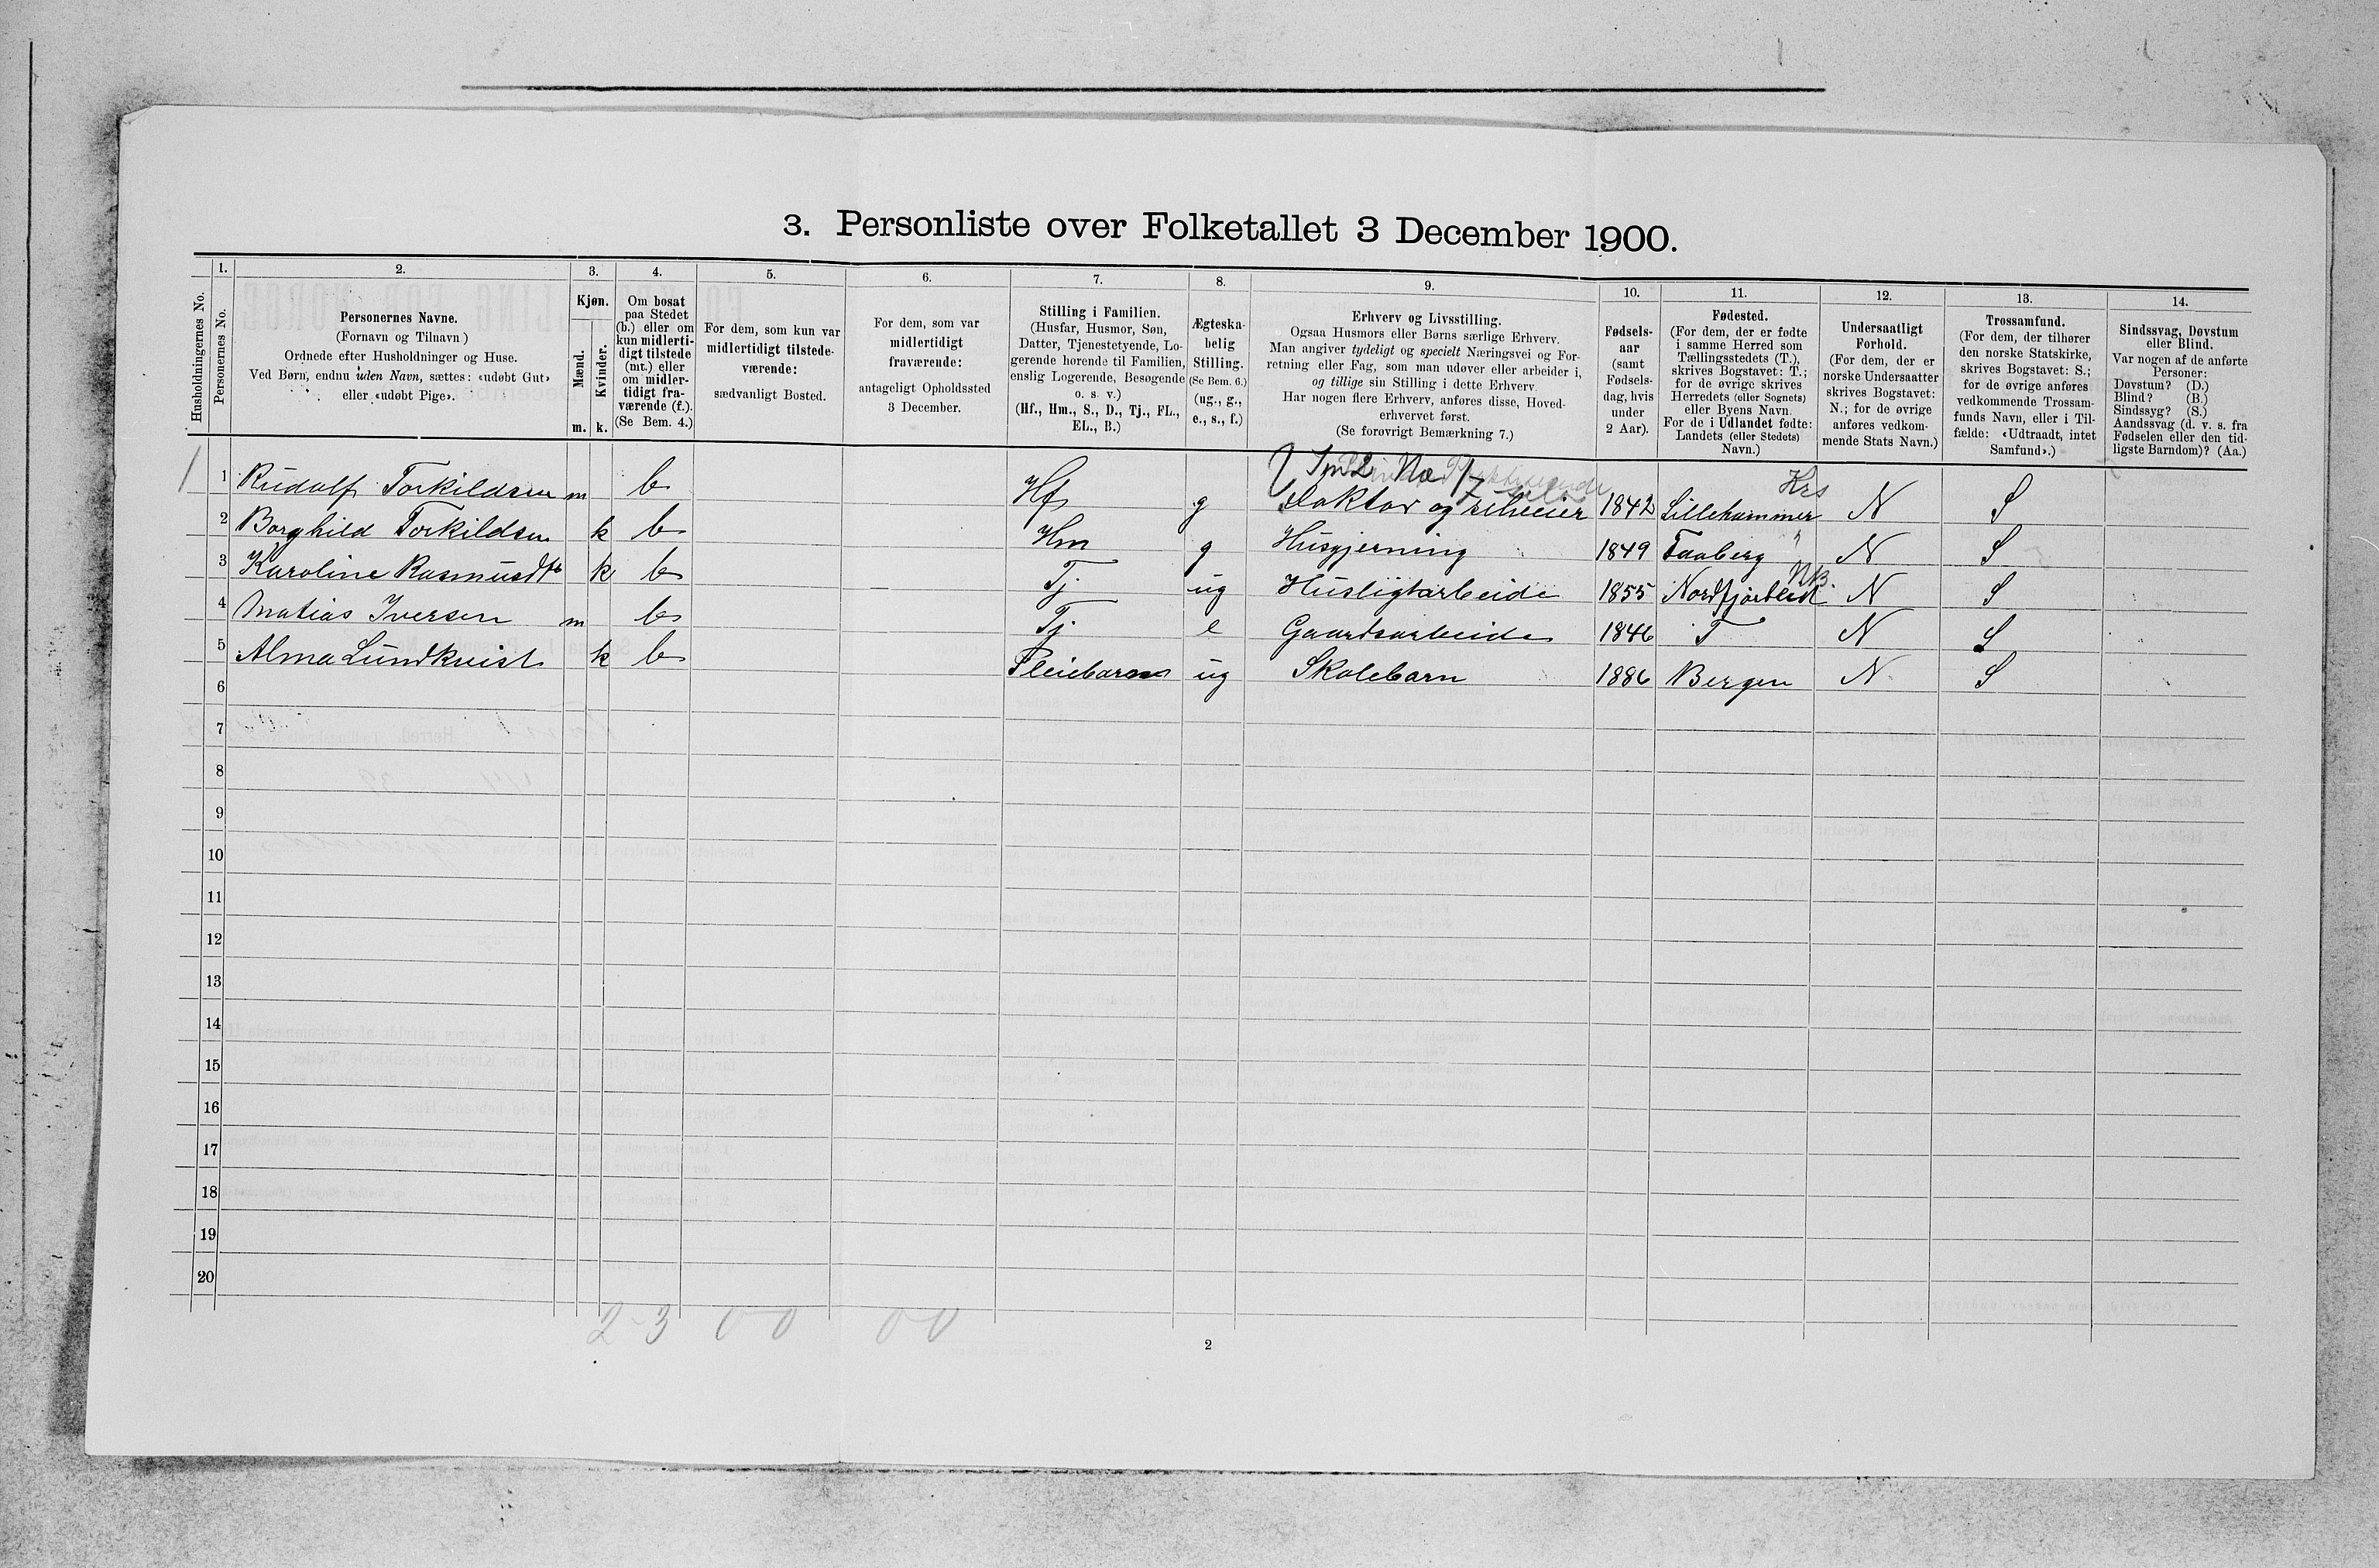 3. Personliste over Folketallet 3 December 1900.
Husholdningernes No.
1.
Personernes No.
2.
Personernes Navne.
(Fornavn og Tilnavn)
Ordnede efter Husholdninger og Huse.
Ved Børn, endnu uden Navn, sættes: «udøbt Gut»
eller «udøbt Pige».
3.
Kjøn.
Mænd.
Kvinder.
m. k.
4.
Om bosat
paa Stedet
(b.) eller om
kun midlerti-
digt tilstede
(mt.) eller
om midler-
tidigt fra-
værende (f.).
(Se Bem. 4.)
5.
For dem, som kun var
midlertidigt tilstede-
værende:
sædvanligt Bosted.
6.
For dem, som var
midlertidigt
fraværende:
antageligt Opholdssted
3 December.
7.
Stilling i Familien.
(Husfar, Husmor, Søn,
Datter, Tjenestetyende, Lo-
gerende hørende til Familien,
enslig Logerende, Besøgende
o. s. v.)
(Hf., Hm., S., D., Tj., FL.,
EL., B.)
8.
Ægteska-
belig
Stilling.
(Se Bem. 6.)
(ug., g.,
e., s., f.)
9.
Erhverv og Livsstilling.
Ogsaa Husmors eller Børns særlige Erhverv.
Man angiver tydeligt og specielt Næringsvei og For-
retning eller Fag, som man udøver eller arbeider i,
og tillige sin Stilling i dette Erhverv.
Har nogen flere Erhverv, anføres disse, Hoved-
erhvervet først.
(Se forøvrigt Bemærkning 7.)
10.
Fødsels-
aar
(samt
Fødsels-
dag, hvis
under
2 Aar).
11.
Fødested.
(For dem, der er fødte
i samme Herred som
Tællingsstedets (T.),
skrives Bogstavet: T.;
for de øvrige skrives
Herredets (eller Sognets)
eller Byens Navn.
For de i Udlandet fødte:
Landets (eller Stedets)
Navn.)
12.
Undersaatligt
Forhold.
(For dem, der er
norske Undersaatter
skrives Bogstavet:
N.; for de øvrige
anføres vedkom-
mende Stats Navn.)
13.
Trossamfund.
(For dem, der tilhører
den norske Statskirke,
skrives Bogstavet: S.;
for de øvrige anføres
vedkommende Trossam-
funds Navn, eller i Til-
fælde: «Udtraadt, intet
Samfund».)
14.
Sindssvag, Døvstum
eller Blind.
Var nogen af de anførte
Personer:
Døvstum? (D.)
Blind? (B.)
Sindssyg? (S.)
Aandssvag (d. v. s. fra
Fødselen eller den tid-
ligste Barndom)? (Aa.)
Krs
1 1 Rudolf Torkildsen m b Hf g Doktor og 1842 Lillehammer N S
2 Borghild Torkildsen k b Hm g Husgjerning 1849 Faaberg " N S
NB.
3 Karoline Rasmusdtr k b Tj ug Husligtarbeide 1855 N S
4 Matias Iversen m b Tj e Gaardsarbeide 1846 T N S
5 Alma Lundkvist k b Pleiebarn ug Skolebarn 1886 Bergen N S
6
7
8
9
10
11
12
13
14
15
16
17
18
19
20
2-3 0 0 0 0
2